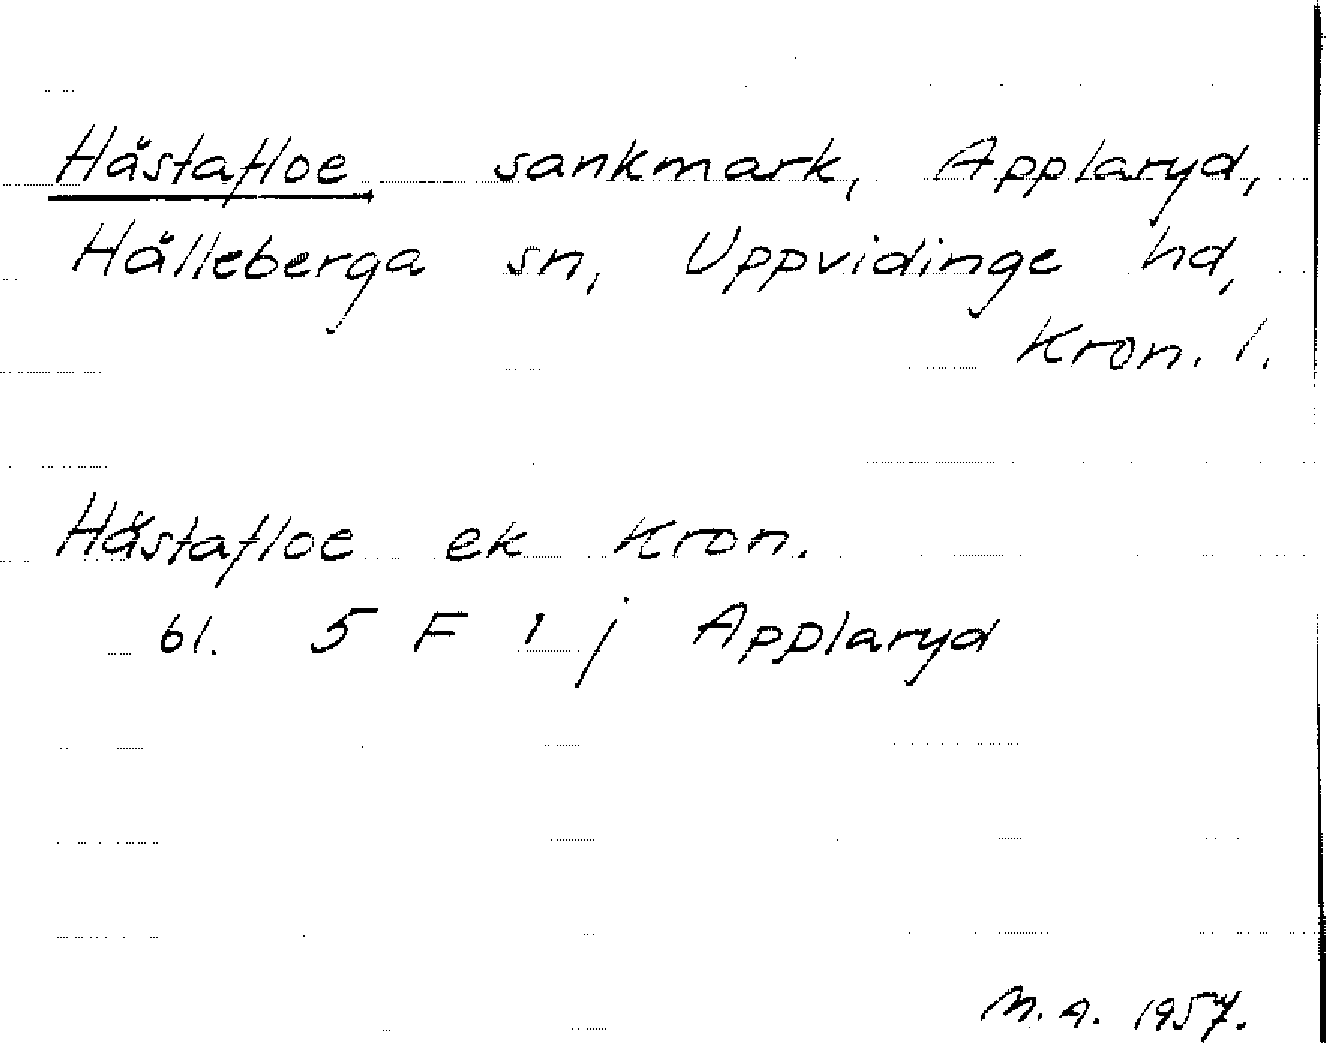 Hästafloe sankmark, Applaryd,
Hälleberga sn, Uppvidinge hd,
Kron. l.
Hästafloe ek Kron.
bl. 5 F 1 j Applaryd
M.A. 1957.